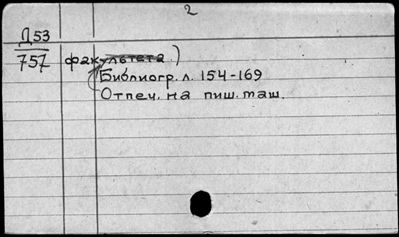 2
Д53
757 факультета.)
(Библиогр. л. 154-169
Отпеч. на пиш. маш.